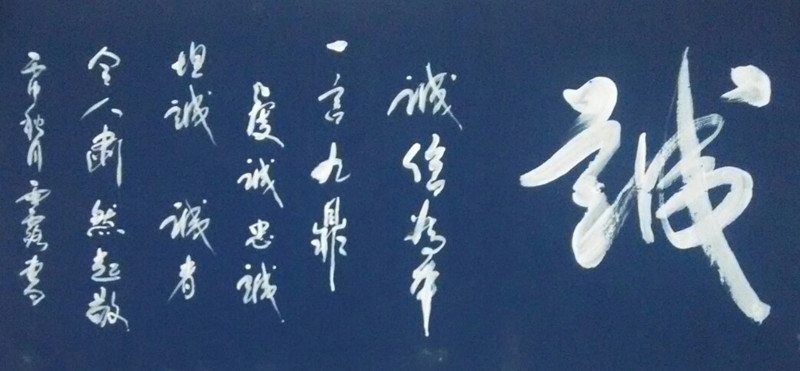 誠
誠信為本
一言九鼎
虔誠忠誠
坦誠 誠者
令人肅然起敬
秋月 書